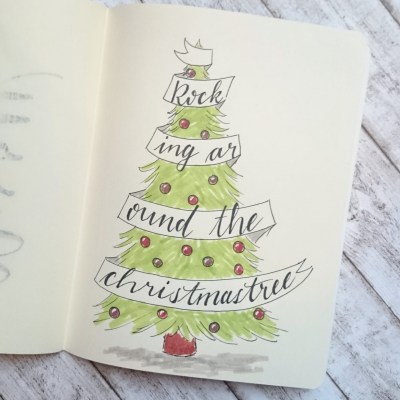 Rock
ing ar
ound the
christmastree